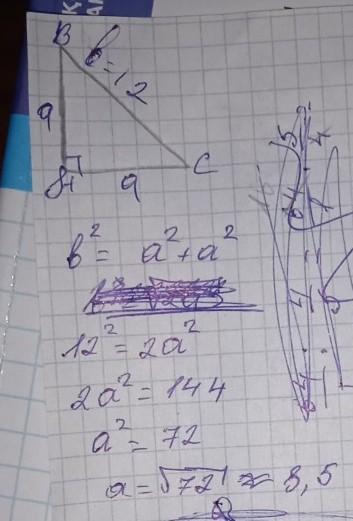 B
b=12
a
A
a
C
b² = a² + a²
12² = 2a²
2a² = 144
a² = 72
a = √72 ≈ 8,5